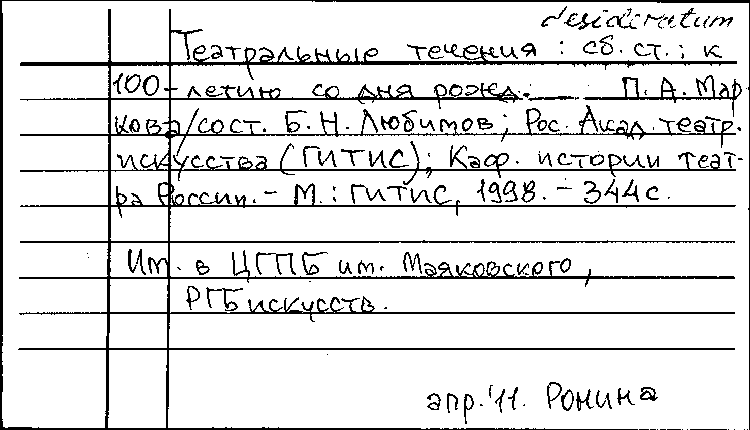 desideratum
Театральные течения : сб. ст. : к
100-летию со дня рожд. П. А. Мар
кова/сост. Б. Н. Любимов; Рос. Акад. театр.
искусства (ГИТИС); Каф. истории теат-
ра России. – М. : ГИТИС, 1998. – 344 с.
Им. в ЦГПБ им. Маяковского,
РГБискусств.
апр. '11. Ронина